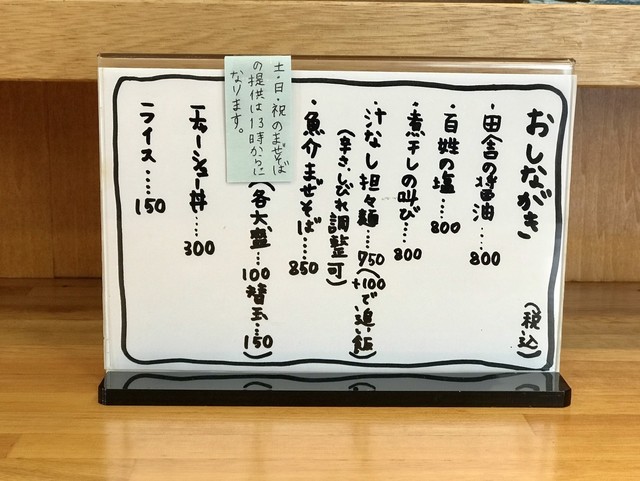 おしながき (税込)
・田舎の醤油……800
・百姓の塩……800
・煮干しの叫び……800
・汁なし担々麺……750(+100で追い飯)
(辛さ、しびれ調整可)
・魚介まぜそば……850
(各大盛…100 替玉…150)
チャーシュー丼……300
ライス……150
土・日・祝のまぜそば
の提供は13時からに
なります。